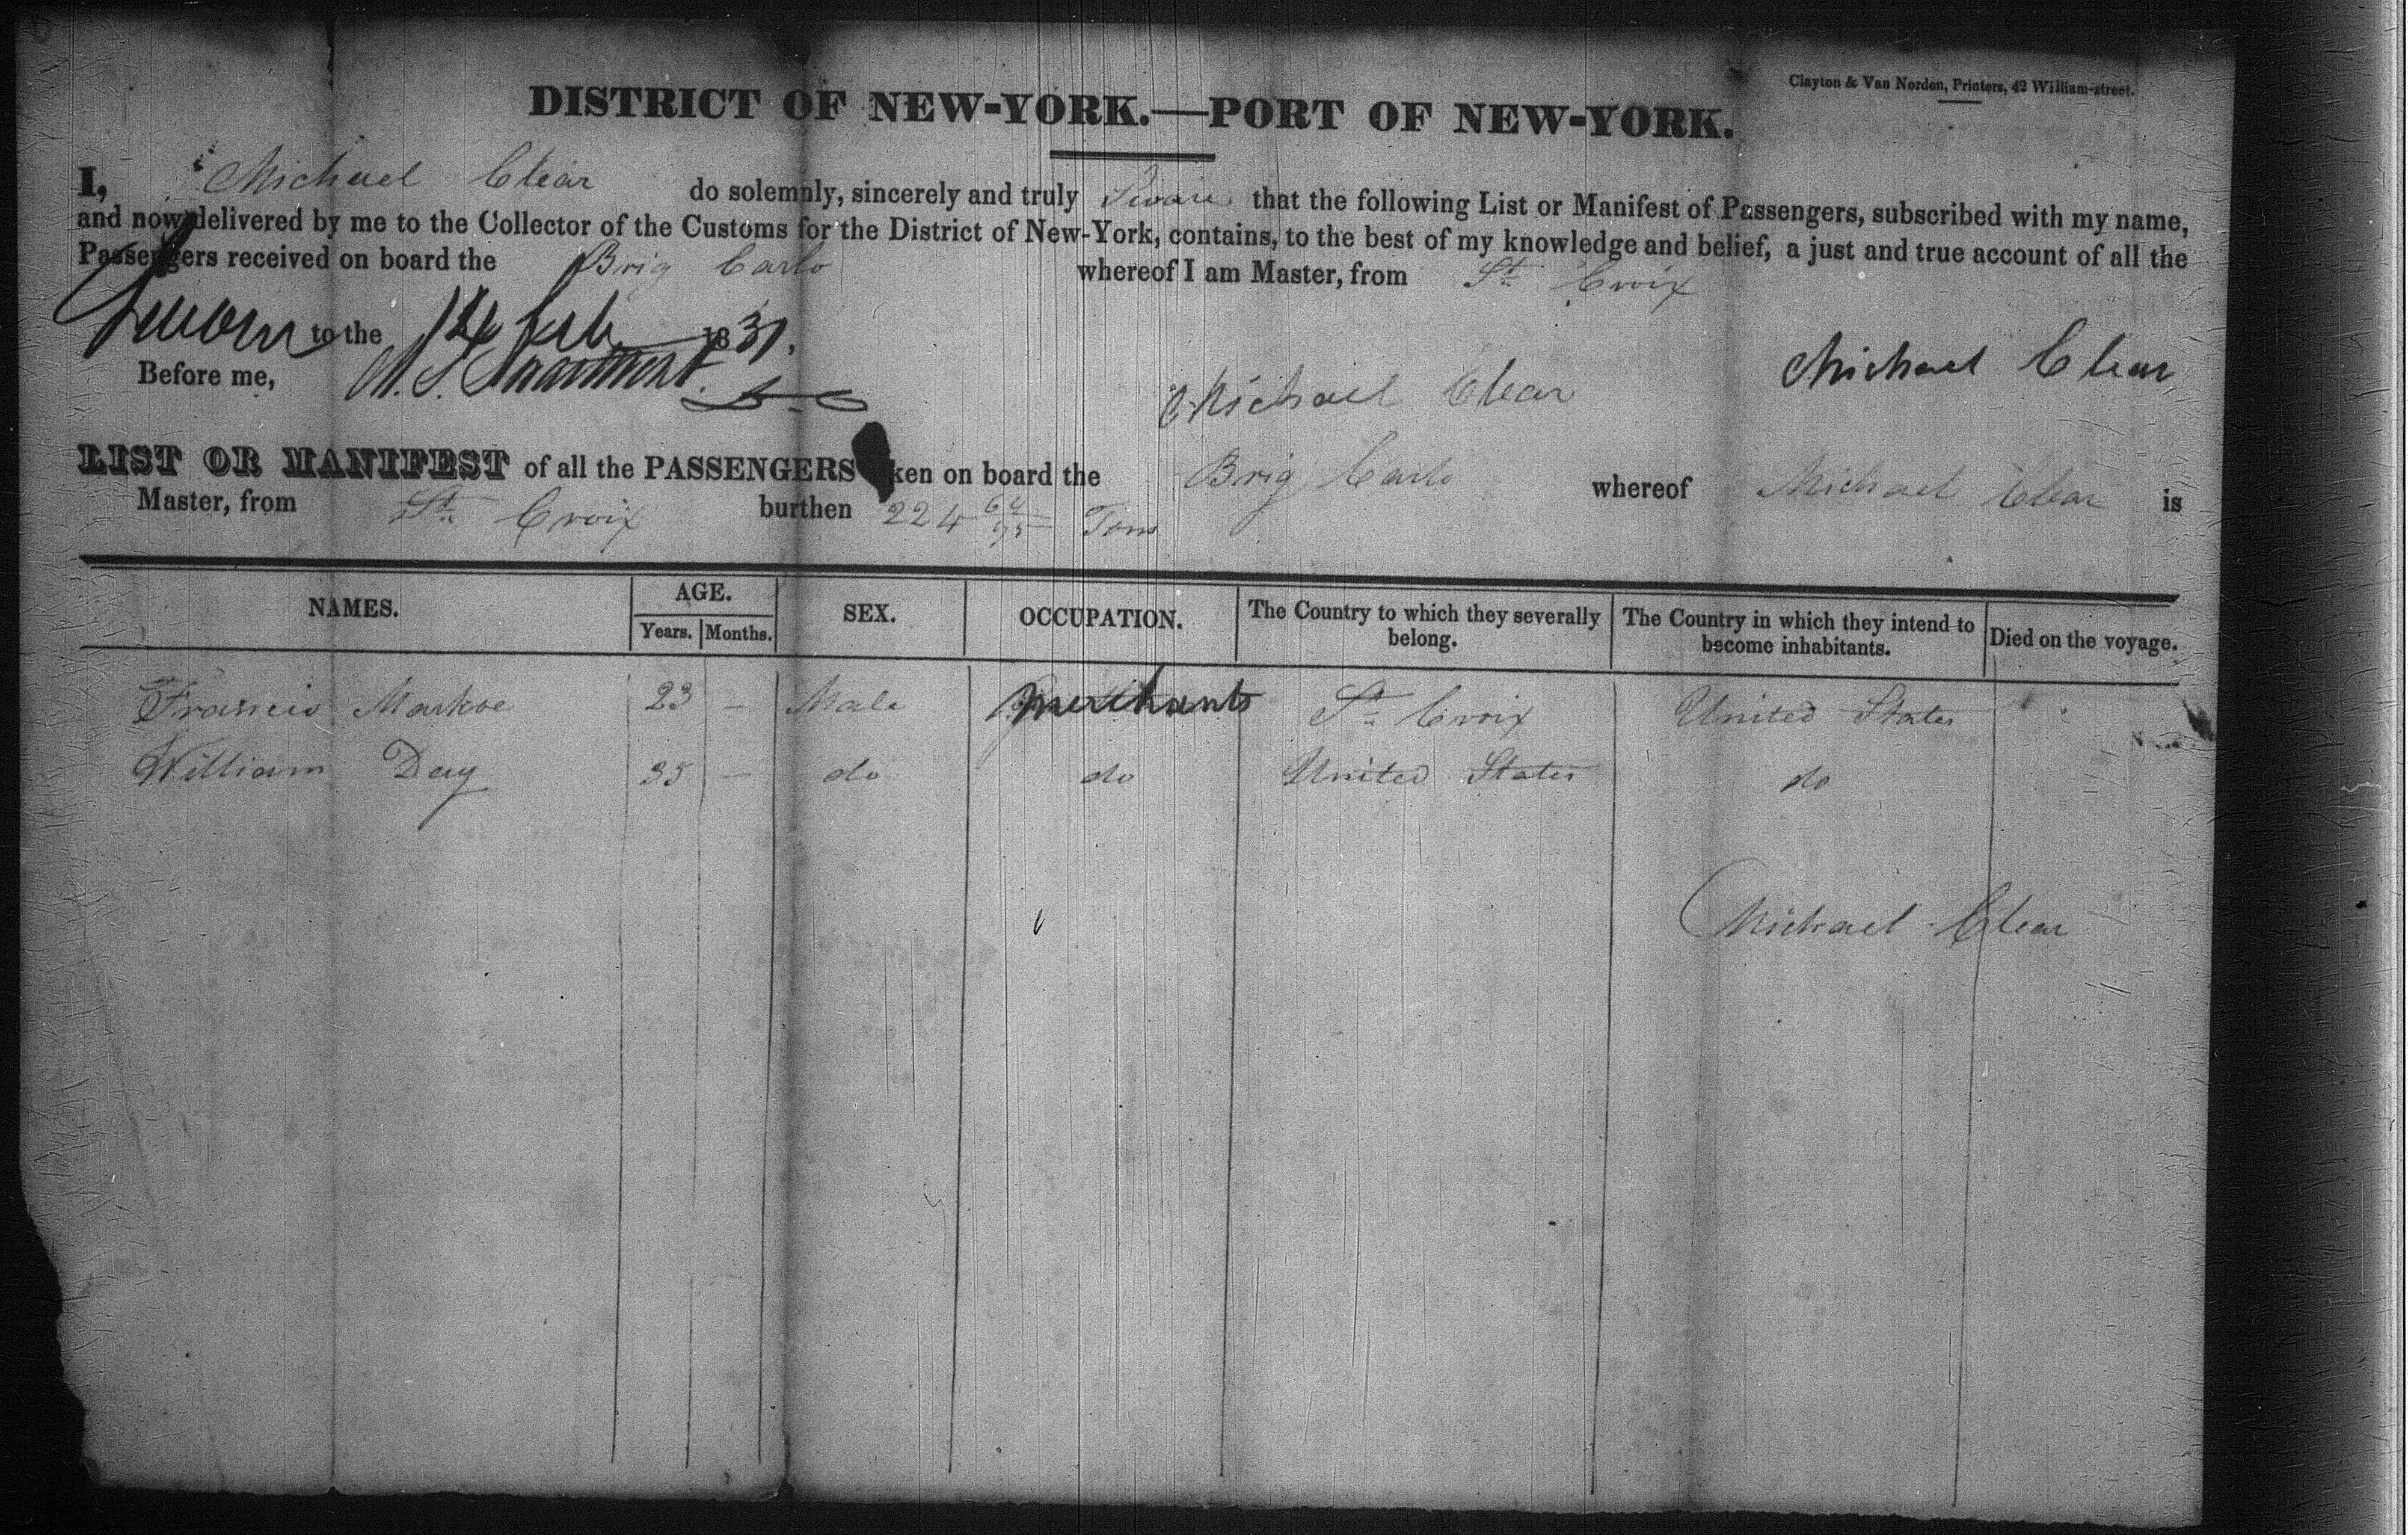 Clayton & Van Norden, Printers, 42 William-street.
DISTRICT OF NEW-YORK.—PORT OF NEW-YORK.
I, Michael Clear do solemnly, sincerely and truly Sware that the following List or Manifest of Passengers, subscribed with my name,
and now delivered by me to the Collector of the Customs for the District of New-York, contains, to the best of my knowledge and belief, a just and true account of all the
Passengers received on board the Brig Carlo whereof I am Master, from St. Croix
Sworn to the 14 Feb 1831,
Michael Clear
Before me,
Michael Clear
LIST OR MANIFEST of all the PASSENGERS ken on board the Brig Carlo whereof Michael Clear is
Master, from St. Croix burthen 224 64/95 Tons
NAMES. AGE. SEX. OCCUPATION. The Country to which they severally belong. The Country in which they intend to become inhabitants. Died on the voyage.
Years. Months.
Francis Markoe 23 - Male Merchants St. Croix United States
William Day 35 - do do United States do
Michael Clear